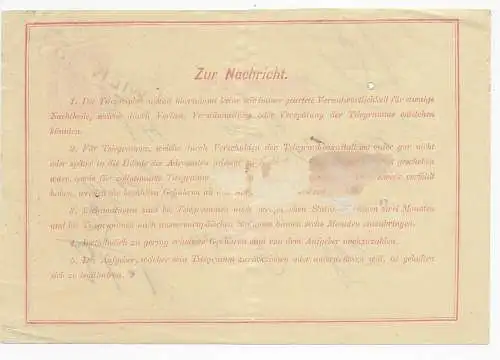 Zur Nachricht.
1. Die Telegraphen-Anstalt übernimmt keine wie immer geartete Verantwortlichkeit für etwaige
Nachtheile, welche durch Verlust, Verstümmelung oder Verspätung der Telegramme entstehen
können.
2. Für Telegramme, welche durch Verschulden der Telegraphenanstalt entweder gar nicht
oder später in die Hände des Adressaten gelangt
wäre, sowie für collationirte Telegramme verfehlt
haben, werden die bezahlten Gebühren
3. Reclamationen sind bei Telegrammen nach europäischen Stationen binnen zwei Monaten
und bei Telegrammen nach aussereuropäischen Stationen binnen sechs Monaten einzubringen.
4. Irrthümlich zu gering erhobene Gebühren sind von dem Aufgeber nachzuzahlen.
5. Der Aufgeber, welcher sein Telegramm zurückziehen oder unterdrücken will, ist gehalten
sich zu legitimiren.